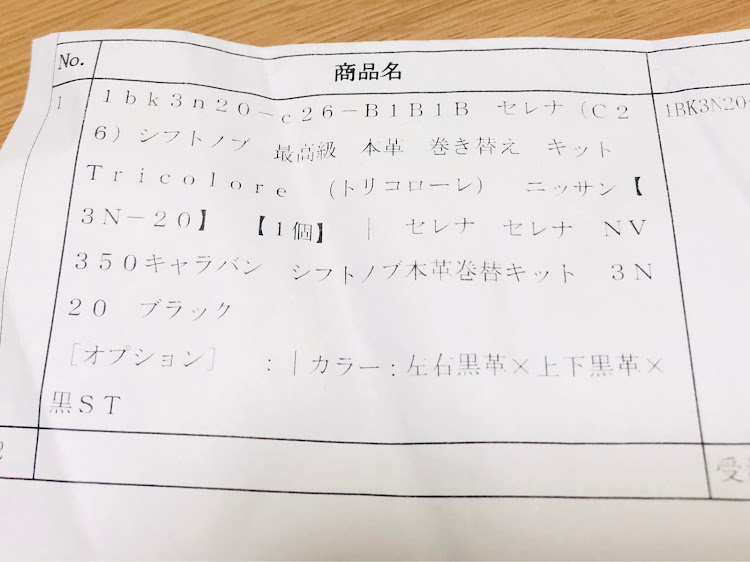 No. 商品名
1 1bk3n20-c26-B1B1B セレナ(C2 1BK3N20-
6)シフトノブ 最高級 本革 巻き替え キット
Tricolore (トリコローレ) ニッサン【
3N-20】 【1個】 | セレナ セレナ NV
350キャラバン シフトノブ本革巻替キット 3N
20 ブラック
[オプション] :|カラー:左右黒革×上下黒革×
黒ST
2
受